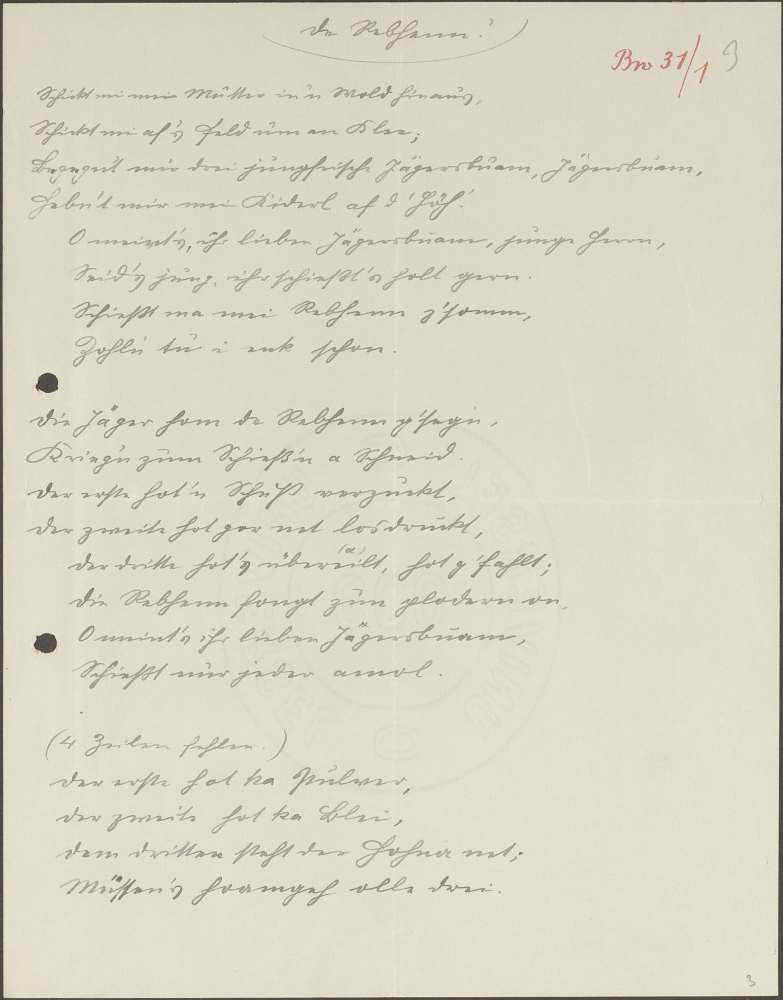 De Rebhenn!
Bw 31/1 9
Schickt mi mein Mutter in'n Wold hinaus,
Schickt mi af's Feld um an Klee;
Begegn't mir drei jungfrische Jägersbuam, Jägersbuam,
Hebn't mir mei Kiderl af d'Höh!
O meint's, ihr lieben Jägersbuam, junge Herrn,
Seid's jung, ihr schießt's holt gern.
Schießt ma mei Rebhenn z'somm,
Zohln tu i enk schon.
Die Jäger hom de Rebhenn g'segn,
Kriegn zum Schieß'n a Schneid.
Der erste hot'n Schuß verzuckt,
Der zweite hot gor net losdruckt,
Der dritte hot's übereilt, hot g'fahlt;
(a)
Die Rebhenn fongt zum plodern on.
O meint's ihr lieben Jägersbuam,
Schießt nur jeder amol.
(4 Zeilen fehlen.)
Der erste hot ka Pulver,
Der zweite hot ka Blei,
Dem dritten steht der Hohna net;
Müssen's hoamgeh olle drei.
3